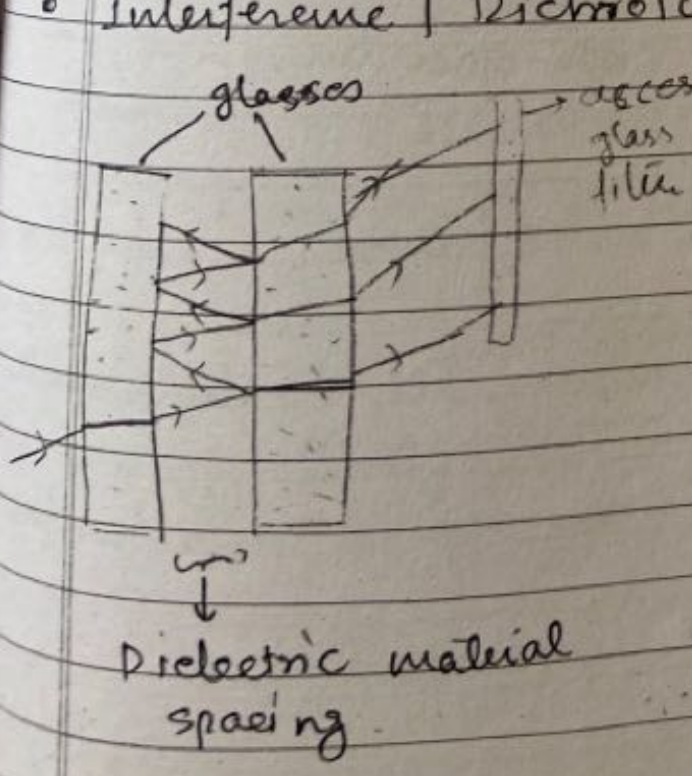 • Interference /
glasses
glass
Dielectric material
spacing